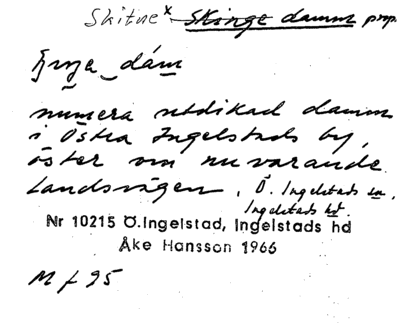 Skitne x Skinge damm prp.
dám
numera utdikad damm
i Östra Ingelstads by,
öster om nuvarande
landsvägen, Ö. Ingelstads sn,
Ingelstads hd.
Nr 10215 Ö.Ingelstad, Ingelstads hd
Åke Hansson 1966
M f 95